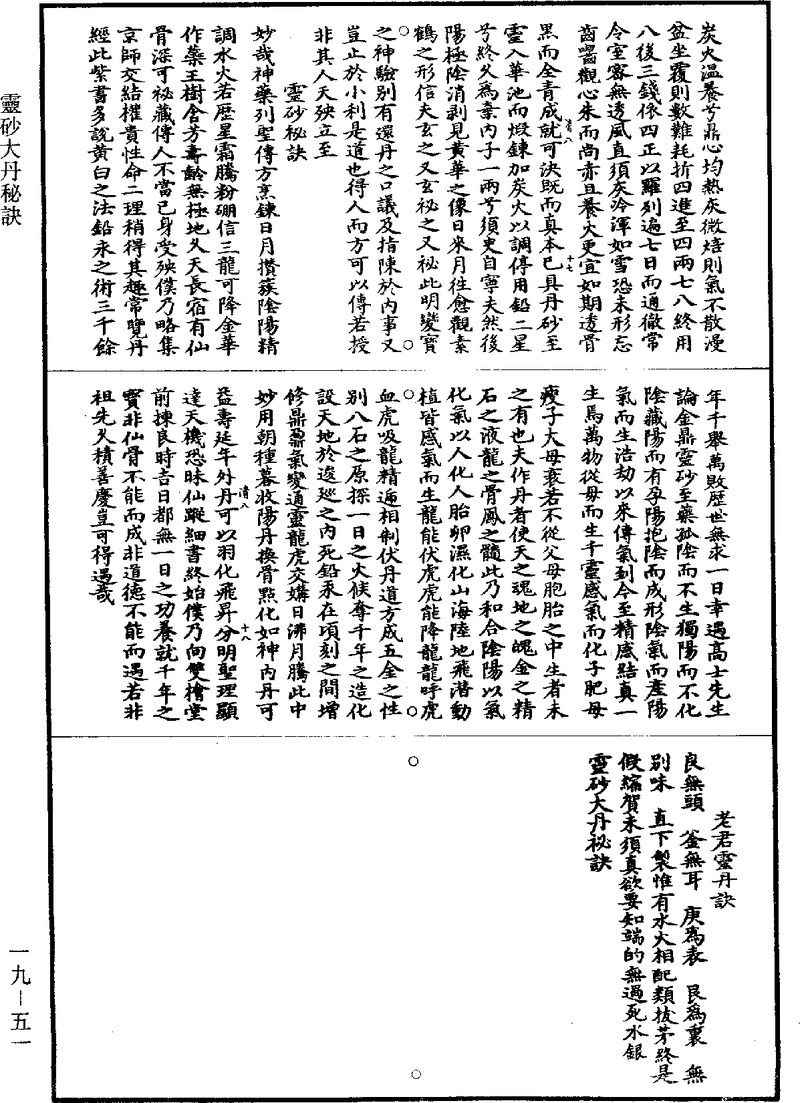 炭火溫養兮鼎心均熱灰微焙則氣不散漫
盆坐覆則數難耗折四進至四兩七八終用
八後三錢依四正以羅列遍七日而通徹常
令室密無透風直須灰冷渾如雪恐未形忘
齒嚼觀心朱而尚赤且養火更宜如期透骨
黑而全青成就可決既而真本已具丹砂至
靈入華池而煅鍊加炭火以調停用鉛二星
兮終久為棄內子一兩兮須臾自寧夫然後
陽極陰消剥見黃華之像日來月往愈觀素
鶴之形信夫玄之又玄秘之又秘此明變寶
之神驗別有還丹之口議及指陳於內事又
豈止於小利是道也得人而方可以傳若授
非其人天殃立至
靈砂秘訣
妙哉神藥列聖傳方烹鍊日月攢蔟陰陽精
調水火若歷星霜騰粉硼信三龍可降金華
作藥王樹含芳壽齡無極地久天長宿有仙
骨深可祕藏傳人不當已身受殃僕乃略集
京師交結權貴性命二理稍得其趣常覽丹
經此紫書多說黃白之法鉛汞之術三千餘
清八
十七
年千舉萬敗歷世無求一日幸遇高士先生
論金鼎靈砂至藥孤陰而不生獨陽而不化
陰藏陽而有孕陽抱陰而成形陰氣而產陽
氣而生浩劫以來傳氣到今至精感結真一
生焉萬物從母而生千靈感氣而化子肥母
瘦子大母衰若不從父母胞胎之中生者未
之有也夫作丹者使天之魂地之魄金之精
石之液龍之骨鳳之髓此乃和合陰陽以氣
化氣以人化人胎卵濕化山海陸地飛潛動
植皆感氣而生龍能伏虎虎能降龍龍呼虎
血虎吸龍精遞相制伏丹道方成五金之性
別八石之原探一日之火候奪千年之造化
設天地於逡巡之內死鉛汞在頃刻之間增
修鼎鼐氣變通靈龍虎交媾日沸月騰此中
妙用朝種暮收陽丹換骨點化如神內丹可
益壽延年外丹可以羽化飛昇分明聖理顯
達天機恐昧仙蹤細書終始僕乃向雙檜堂
前揀良時吉日都無一日之功養就千年之
寶非仙骨不能而成非道德不能而遇若非
祖先久積善慶豈可得遇哉
清八
十八
老君靈丹訣
良無頭 釜無耳 庚為表 艮為裏 無
別味 直下製惟有水火相配類拔茅終是
假縮賀未須真欲要知端的無過死水銀
靈砂大丹祕訣
靈砂大丹秘訣
一九－五一